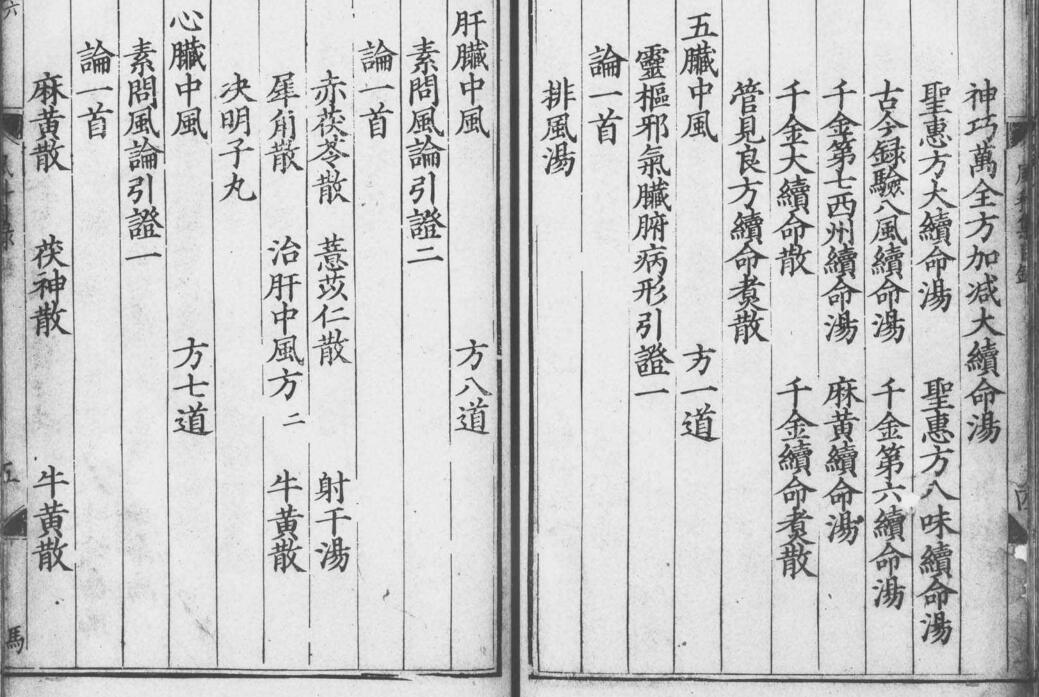 神巧萬全方加减大續命湯
聖惠方大續命湯 聖惠方八味續命湯
古今録驗八風續命湯 千金第六續命湯
千金第七西州續命湯 麻黄續命湯
千金大續命散 千金續命煑散
管見良方續命煑散
五臟中風 方一道
靈樞邪氣臟腑病形引證一
論一首
排風湯
肝臟中風 方八道
素問風論引證二
論一首
赤茯苓散 薏苡仁散 射干湯
犀角散 治肝中風方二 牛黄散
决明子丸
心臟中風 方七道
素問風論引證一
論一首
麻黄散 茯神散 牛黄散